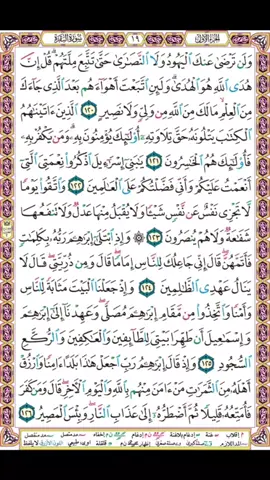 الجزء الأول ١٩ سورة البقرة
وَلَن تَرْضَىٰ عَنكَ ٱلْيَهُودُ وَلَا ٱلنَّصَٰرَىٰ حَتَّىٰ تَتَّبِعَ مِلَّتَهُمْ قُلْ إِنَّ
هُدَى ٱللَّهِ هُوَ ٱلْهُدَىٰ وَلَئِنِ ٱتَّبَعْتَ أَهْوَآءَهُم بَعْدَ ٱلَّذِى جَآءَكَ
مِنَ ٱلْعِلْمِ مَا لَكَ مِنَ ٱللَّهِ مِن وَلِىٍّ وَلَا نَصِيرٍ ١٢٠ ٱلَّذِينَ ءَاتَيْنَٰهُمُ
ٱلْكِتَٰبَ يَتْلُونَهُۥ حَقَّ تِلَاوَتِهِۦٓ أُو۟لَٰٓئِكَ يُؤْمِنُونَ بِهِۦ وَمَن يَكْفُرْ بِهِۦ
فَأُو۟لَٰٓئِكَ هُمُ ٱلْخَٰسِرُونَ ١٢١ يَٰبَنِىٓ إِسْرَٰٓءِيلَ ٱذْكُرُوا۟ نِعْمَتِىَ ٱلَّتِىٓ
أَنْعَمْتُ عَلَيْكُمْ وَأَنِّى فَضَّلْتُكُمْ عَلَى ٱلْعَٰلَمِينَ ١٢٢ وَٱتَّقُوا۟ يَوْمًا
لَّا تَجْزِى نَفْسٌ عَن نَّفْسٍ شَيْـًٔا وَلَا يُقْبَلُ مِنْهَا عَدْلٌ وَلَا تَنفَعُهَا
شَفَٰعَةٌ وَلَا هُمْ يُنصَرُونَ ١٢٣ وَإِذِ ٱبْتَلَىٰٓ إِبْرَٰهِۦمَ رَبُّهُۥ بِكَلِمَٰتٍ
فَأَتَمَّهُنَّ قَالَ إِنِّى جَاعِلُكَ لِلنَّاسِ إِمَامًا قَالَ وَمِن ذُرِّيَّتِى قَالَ لَا
يَنَالُ عَهْدِى ٱلظَّٰلِمِينَ ١٢٤ وَإِذْ جَعَلْنَا ٱلْبَيْتَ مَثَابَةً لِّلنَّاسِ
وَأَمْنًا وَٱتَّخِذُوا۟ مِن مَّقَامِ إِبْرَٰهِۦمَ مُصَلًّى وَعَهِدْنَآ إِلَىٰٓ إِبْرَٰهِۦمَ
وَإِسْمَٰعِيلَ أَن طَهِّرَا بَيْتِىَ لِلطَّآئِفِينَ وَٱلْعَٰكِفِينَ وَٱلرُّكَّعِ
ٱلسُّجُودِ ١٢٥ وَإِذْ قَالَ إِبْرَٰهِۦمُ رَبِّ ٱجْعَلْ هَٰذَا بَلَدًا ءَامِنًا وَٱرْزُقْ
أَهْلَهُۥ مِنَ ٱلثَّمَرَٰتِ مَنْ ءَامَنَ مِنْهُم بِٱللَّهِ وَٱلْيَوْمِ ٱلْـَٔاخِرِ قَالَ وَمَن كَفَرَ
فَأُمَتِّعُهُۥ قَلِيلًا ثُمَّ أَضْطَرُّهُۥٓ إِلَىٰ عَذَابِ ٱلنَّارِ وَبِئْسَ ٱلْمَصِيرُ ١٢٦